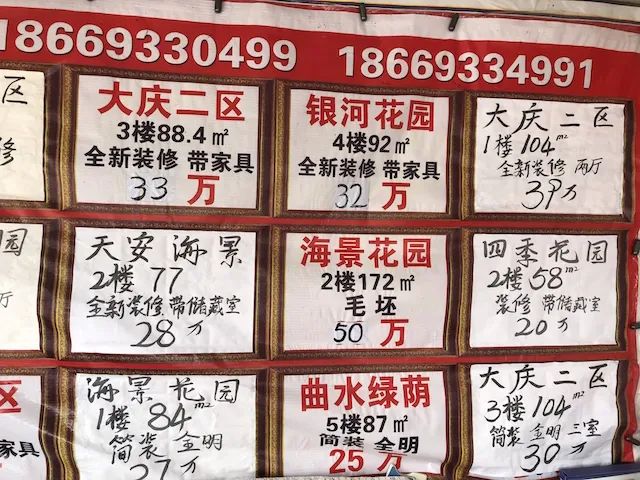 18669330499 18669334991
区
修
大庆二区
3楼88.4㎡
全新装修 带家具
33万
银河花园
4楼92㎡
全新装修 带家具
32万
大庆二区
1楼104m²
全新装修 两厅
39万
园
天安海景
2楼77
全新装修 带储藏室
28万
海景花园
2楼172㎡
毛坯
50万
四季花园
2楼58m²
装修 带储藏室
20万
区
家具
海景花园
1楼84m²
简装 全明
27万
曲水绿荫
5楼87㎡
简装 全明
25万
大庆二区
3楼104m²
简装 全明 三室
30万